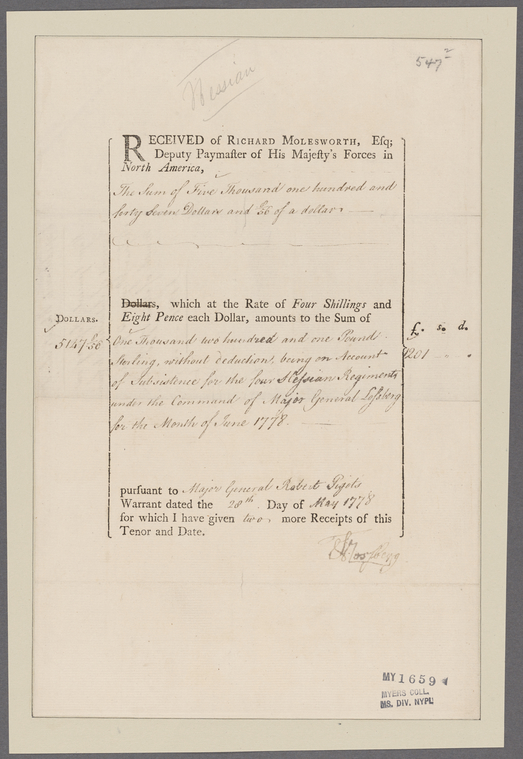 547
Hessian
RECEIVED of RICHARD MOLESWORTH, Esq;
Deputy Paymaſter of His Majeſty's Forces in
North America,
The Sum of Five Thousand one hundred and
forty Seven Dollars and of a dollar.
Dollars, which at the Rate of Four Shillings and
Eight Pence each Dollar, amounts to the Sum of
DOLLARS.
£. s. d.
One Thousand two hundred and one Pounds
5147
1201
Sterling, without deduction, being on Account
of Subsistence for the four Hessian Regiments
under the Command of Major General Loſsberg
for the Month of June 1778.
pursuant to Major General Robert Pigots
Warrant dated the 28th Day of May 1778
for which I have given two more Receipts of this
Tenor and Date.
MY 1659
MYERS COLL.
MS. DIV. NYPL